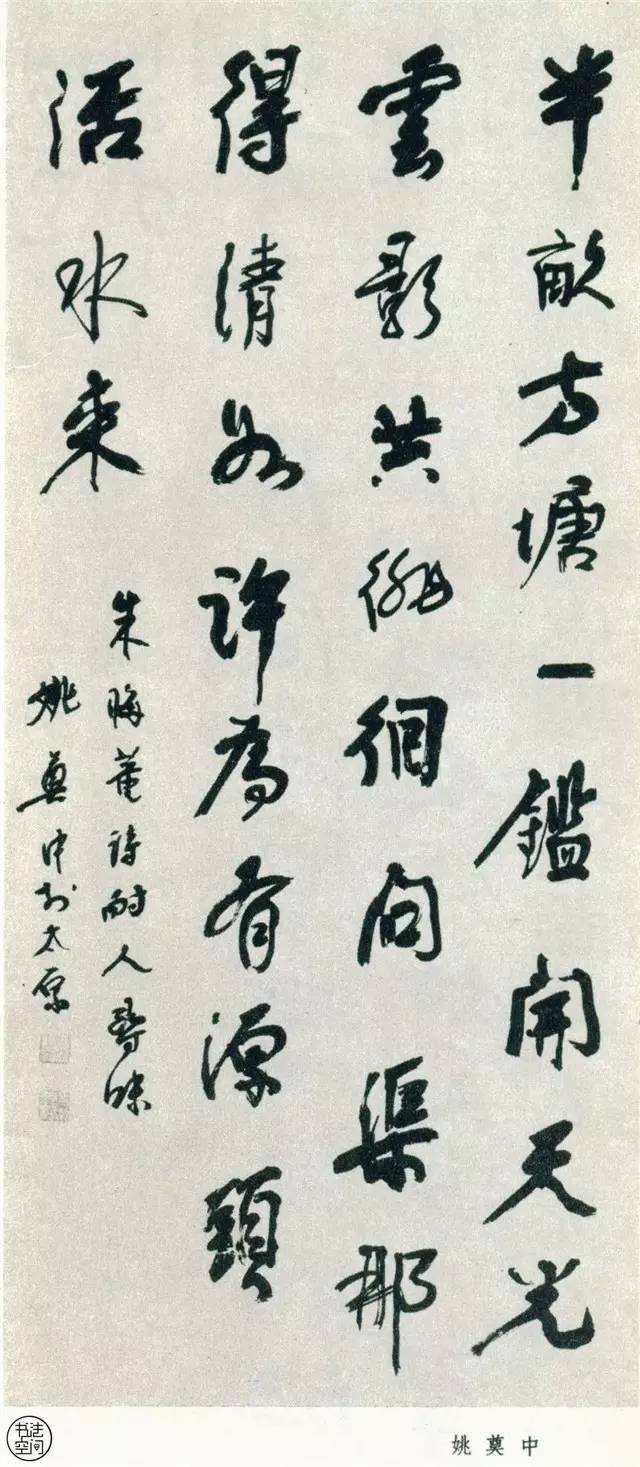 半畝方塘一鑑開天光
雲影共徘徊問渠那
得清如許為有源頭
活水来
朱晦菴詩耐人尋味
姚奠中於太原
书法空间
姚奠中